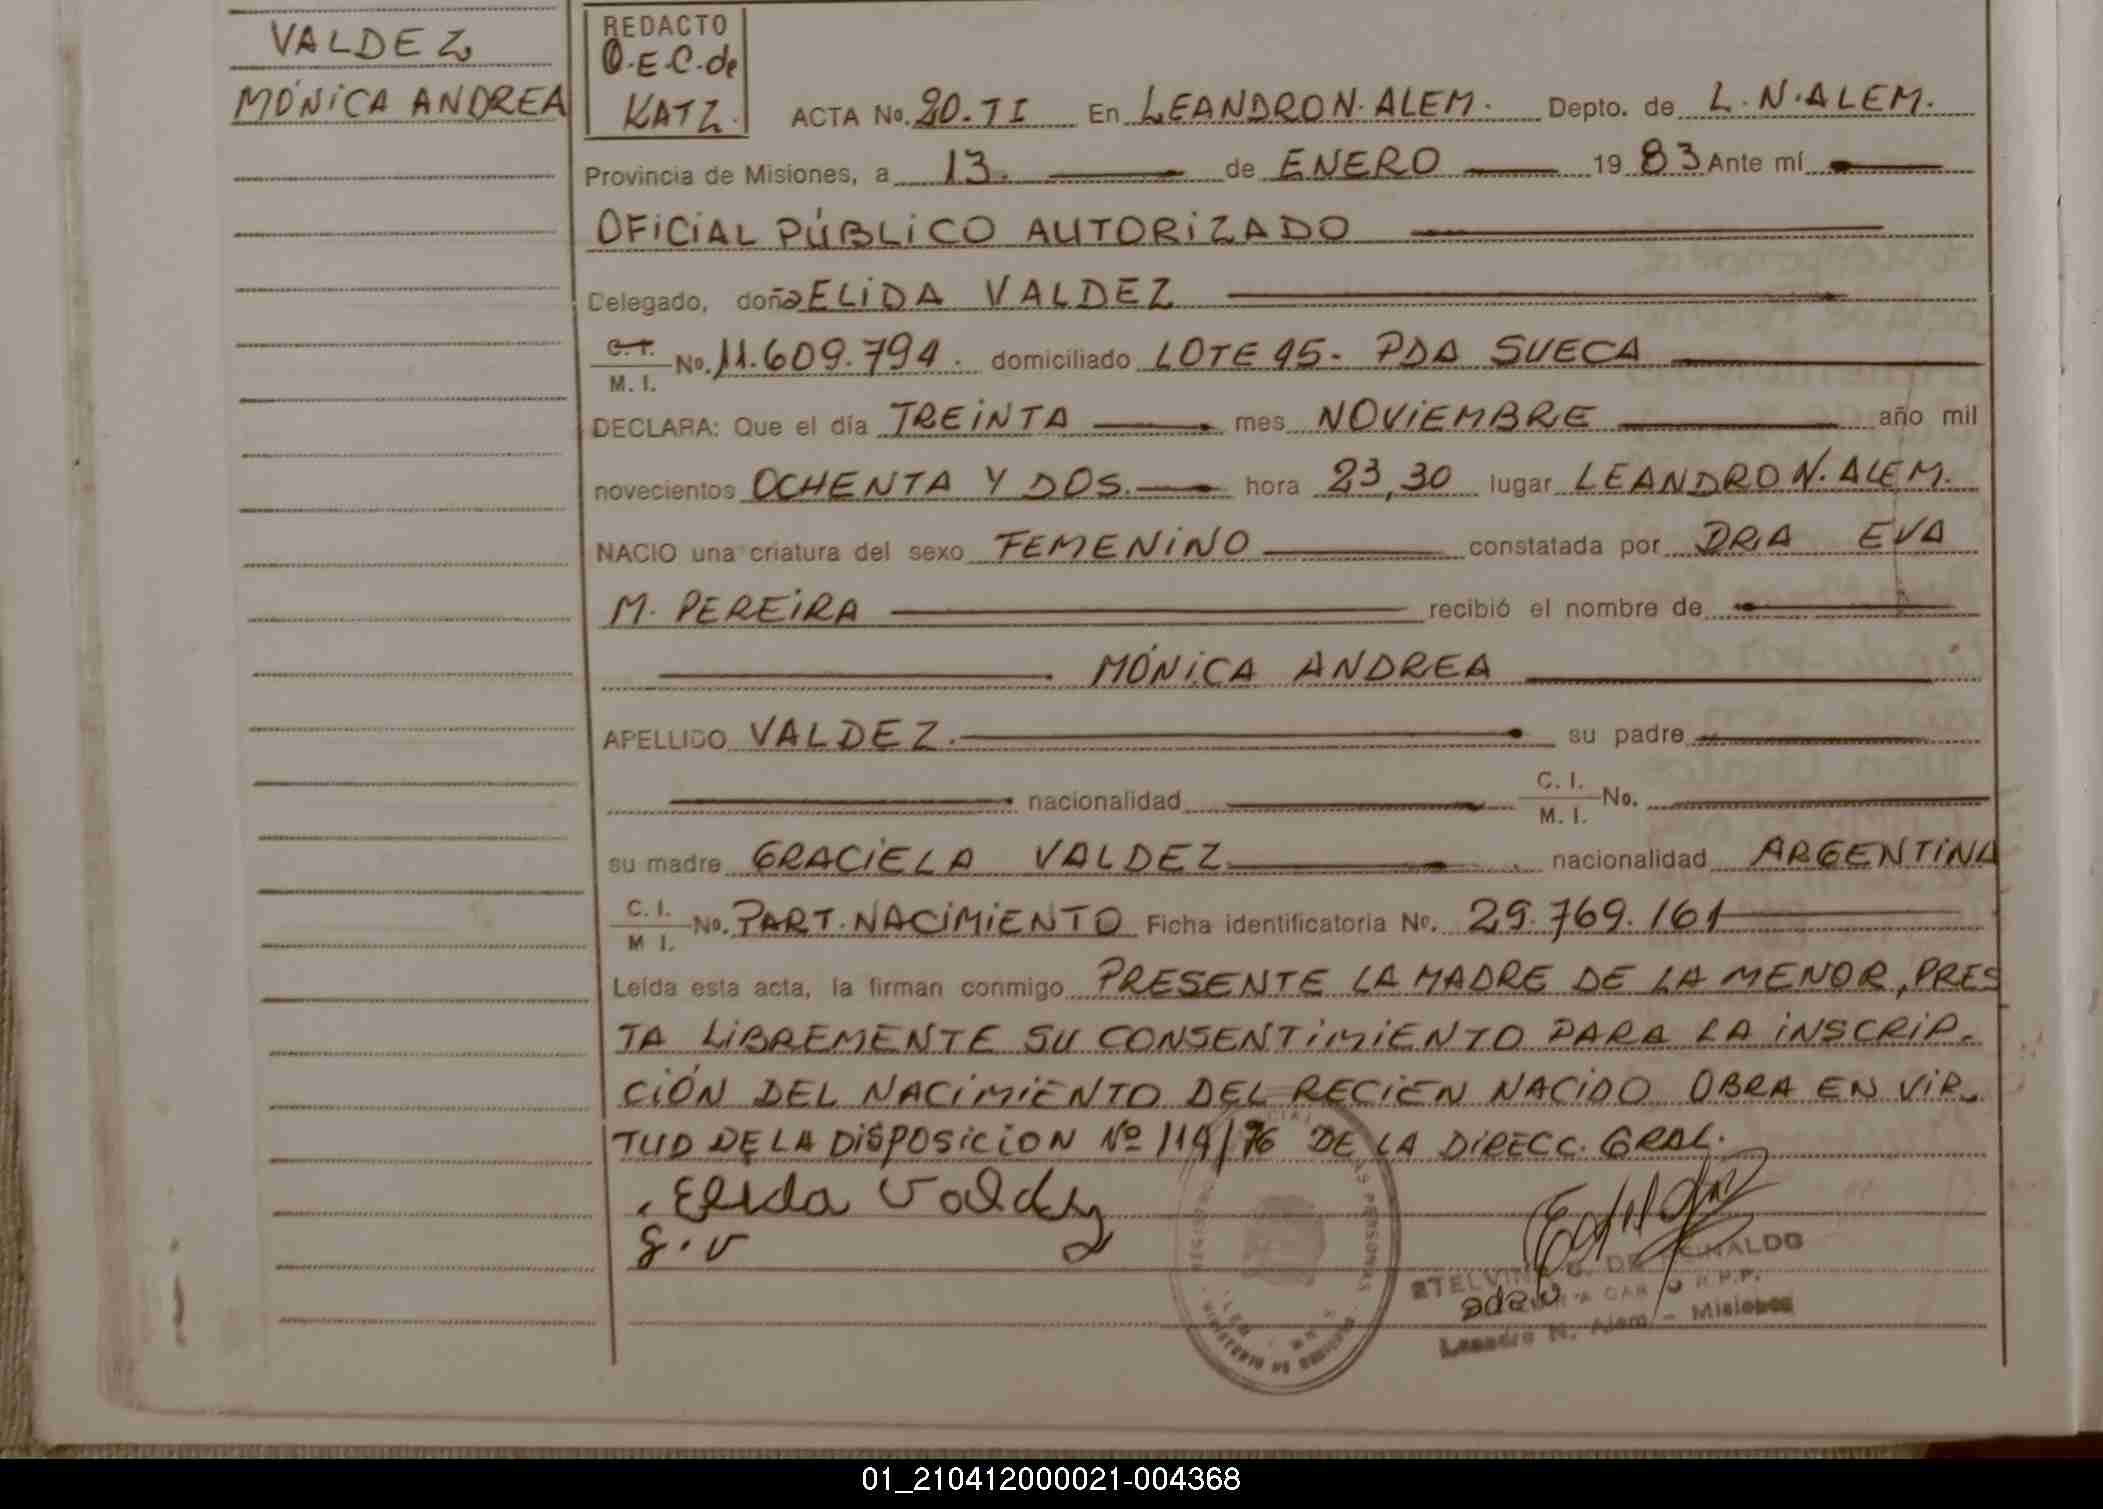 VALDEZ
MÓNICA ANDREA
REDACTO
O.E.C. de
KATZ.
ACTA No. 20. TI En LEANDRO N. ALEM. Depto. de L. N. ALEM.
Provincia de Misiones, a 13. de ENERO 19 83 Ante mí
OFICIAL PÚBLICO AUTORIZADO
Delegado, doña ELIDA VALDEZ
C. I.
M. I. No. 11.609.794. domiciliado LOTE 95. PDA SUECA
DECLARA: Que el día TREINTA mes NOVIEMBRE año mil
novecientos OCHENTA Y DOS. hora 23,30 lugar LEANDRO N. ALEM.
NACIO una criatura del sexo FEMENINO constatada por DRA EVA
M. PEREIRA recibió el nombre de
MÓNICA ANDREA
APELLIDO VALDEZ. su padre
nacionalidad C. I.
M. I. No.
su madre GRACIELA VALDEZ nacionalidad ARGENTINA
C. I.
M I. No. PART. NACIMIENTO Ficha identificatoria No. 29.769.161
Leída esta acta, la firman conmigo PRESENTE LA MADRE DE LA MENOR, PRES
TA LIBREMENTE SU CONSENTIMIENTO PARA LA INSCRIP.
CIÓN DEL NACIMIENTO DEL RECIEN NACIDO OBRA EN VIR.
TUD DE LA DISPOSICION Nº 119/76 DE LA DIRECC. GRAL.
Elida Valdez
g. v
Leandro N. Alem - Misiones
01_210412000021-004368